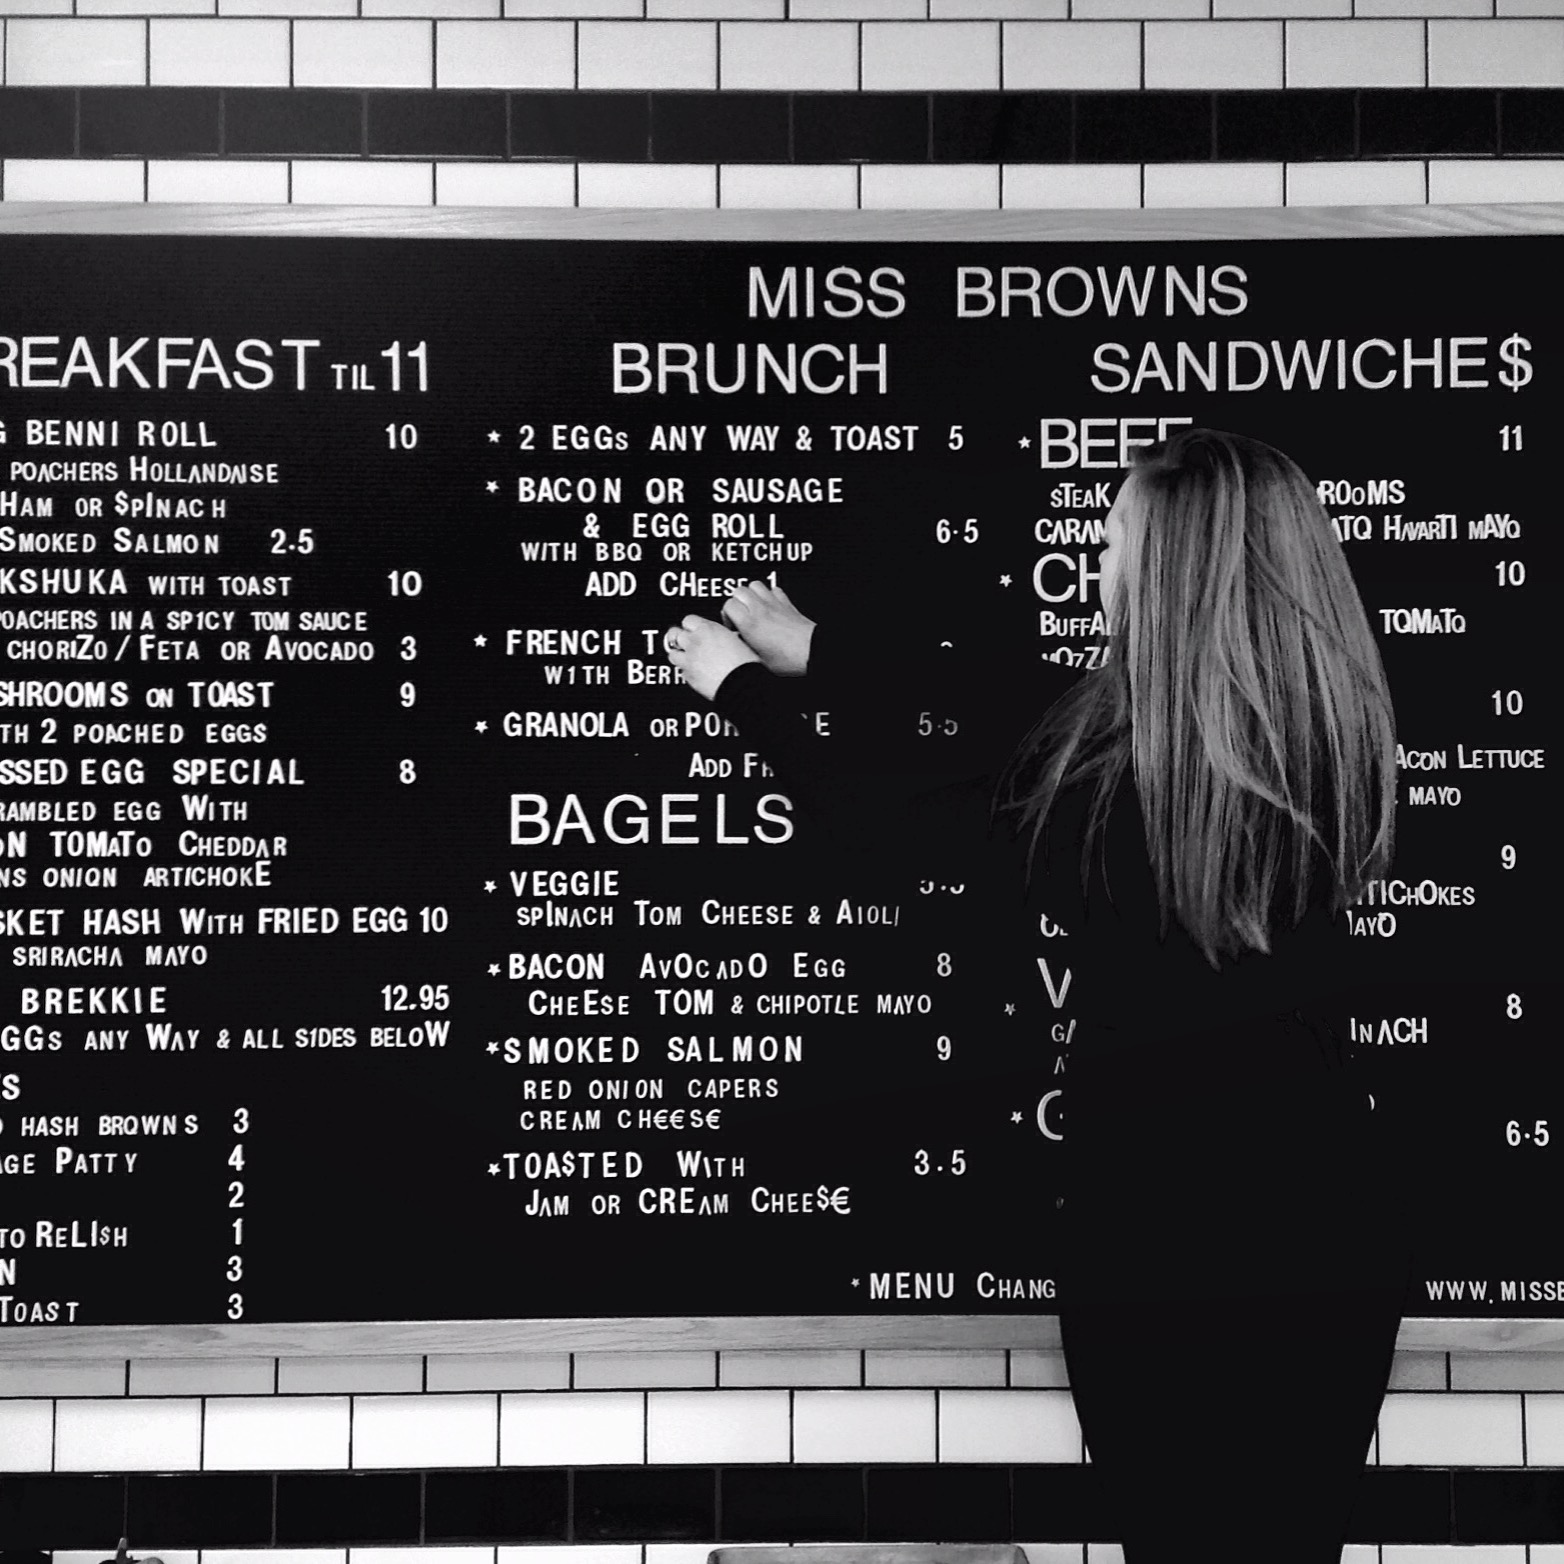 MISS BROWNS
REAKFAST TIL 11
BENNI ROLL 10
POACHERS HOLLANDAISE
HAM OR $PINACH
SMOKED SALMON 2.5
KSHUKA WITH TOAST 10
OACHERS IN A SP1CY TOM SAUCE
CHORIZO / FETA OR AVOCADO 3
SHROOMS ON TOAST 9
TH 2 POACHED EGGS
SSED EGG SPECIAL 8
RAMBLED EGG WITH
ON TOMATO CHEDDAR
NS ONION ARTICHOKE
SKET HASH WITH FRIED EGG 10
SRIRACHA MAYO
BREKKIE 12.95
GGS ANY WAY & ALL S1DES BELOW
HASH BROWNS 3
GE PATTY 4
2
TO RELISH 1
N 3
TOAST 3
BRUNCH
* 2 EGGS ANY WAY & TOAST 5
* BACON OR SAUSAGE
& EGG ROLL 6.5
WITH BBQ OR KETCHUP
ADD CHEESE 1
* FRENCH T
W1TH BERR
* GRANOLA OR POR E 5.5
ADD FR
BAGELS
* VEGGIE
SPINACH TOM CHEESE & AIOLI
* BACON AVOCADO EGG 8
CHEESE TOM & CHIPOTLE MAYO
* SMOKED SALMON 9
RED ONION CAPERS
CREAM CH€€S€
* TOA$TED WITH 3.5
JAM OR CREAM CHEE$€
SANDWICHE$
* BEEF 11
STEAK ROOMS
CARAM ATO HAVARTI MAYO
* CH 10
BUFFA TOMATO
10
ACON LETTUCE
MAYO
9
TICHOKES
MAYO
* V 8
INACH
* 6.5
* MENU CHANG
WWW.MISSB